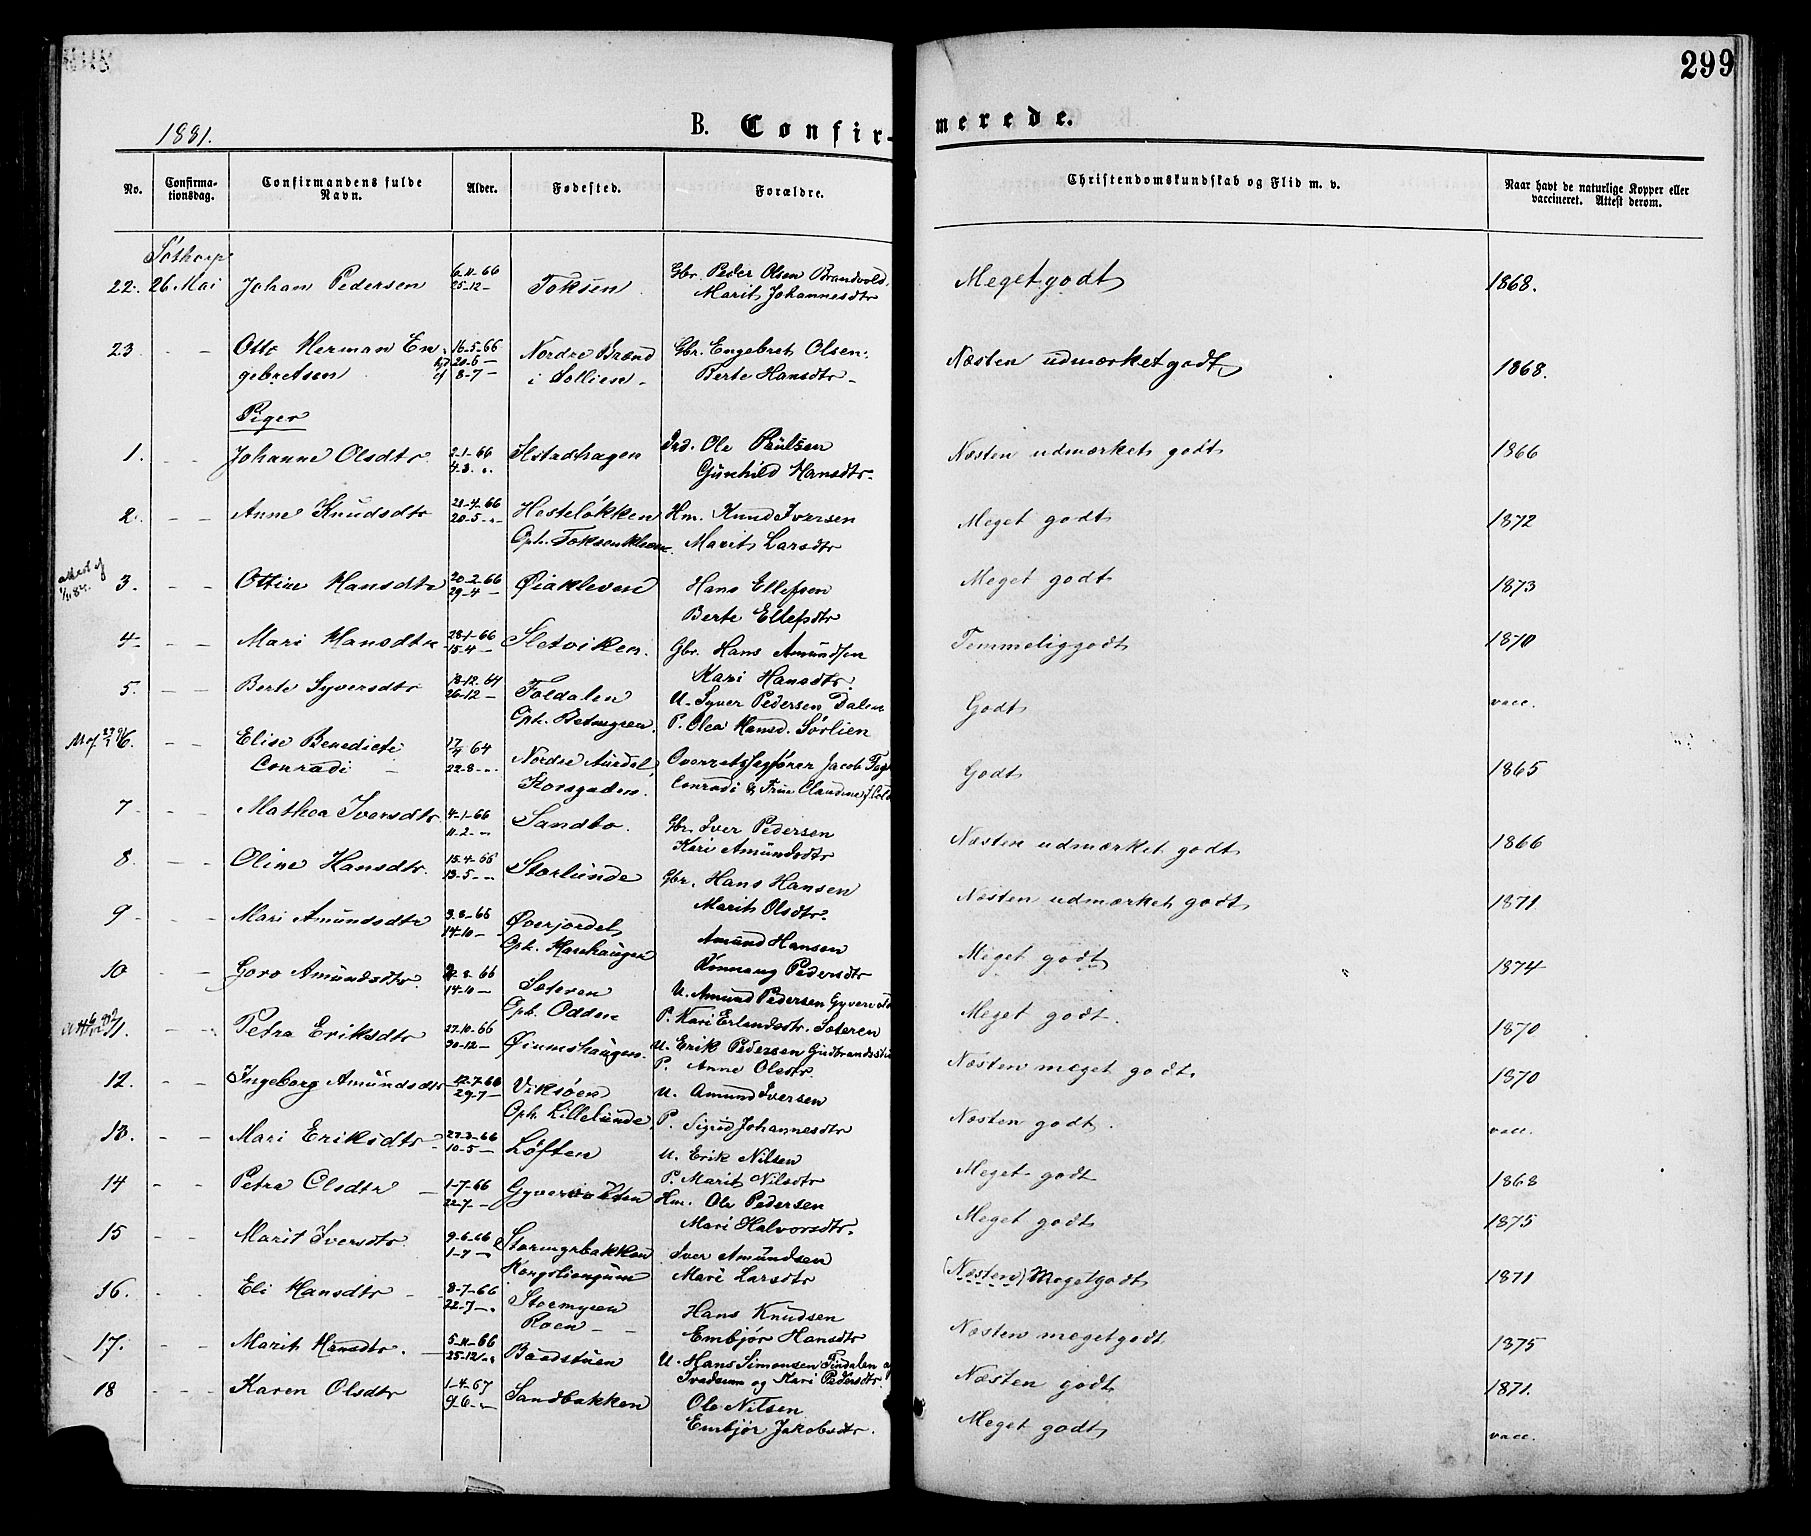 299
1881.
B. Confirmerede.
No. Confirmationsdag. Confirmandens fulde Navn. Alder. Fødested. Forældre. Christendomskundskab og Flid m. v. Naar havt de naturlige Kopper eller vaccineret. Attest derom.
22. 26 Mai Johan Pedersen 6-11-66 Toksen Gbr. Peder Olsen Brandvold Meget godt 1868.
25-12- Marit Johannesdtr
23 - - Otto Herman En- 16-5-66 Nordre Brænd Gbr. Engebret Olsen Næsten udmærket godt 1868.
gebretsen 20-6- i Sollien Berte Hansdtr
8-7-
Piger
1. - - Johanne Olsdtr 2-1-66 Ole Paulsen Næsten udmærket godt 1866
4-3 Gunhild Hansdtr
2. - - Anne Knudsdtr 28-4-66 Hesteløkken Hm. Knud Iversen Meget godt 1872
20-5 Oph. Marit Larsdtr
3. - - Ottine Hansdtr 20-2-66 Øiakleven Hans Ellefsen Meget godt 1873
29-4- Berte Ellefsdtr
4- - - Mari Hansdtr 28-1-66 Sletviken Gbr. Hans Amundsen Temmelig godt 1870
15-4- Kari Hansdtr.
5. - - Berte Syversdtr 18-12-64 Foldalen U. Syver Pedersen Dalen Godt vacc.
26-12- Oph. P. Olea Hansd. Sørlien
6. - - Elise Benedicte 17/7 64 Nordre Aurdal, Overretssagfører Jacob Godt 1865
Conradi 22-8 Conradi & Frue Claudine
7. - - Mathea Iversdtr 4-1-66 Sandbo. Gbr. Iver Pedersen Næsten udmærket godt 1866
11-2 Kari Amundsdtr
8. - - Oline Hansdtr. 15-4-66 Storlunde Gbr. Hans Hansen Næsten udmærket godt 1871
13-5 Marit Olsdtr
9 - - Mari Amundsdtr 9-8-66 Øverjordet Amund Hansen Meget godt 1874
14-10 Oph. Rønnaug Pedersdtr
10 - - Goro Amundsdtr. Sæteren U. Amund Pedersen Meget godt. 1870
14-10- Oph. Odden P. Kari Erlandsdtr. Sæteren
11. - - Petra Eriksdtr 27-10-66 Øiumshaugen U. Erik Pedersen Næsten meget godt. 1870
30-12- P. Anne Olsdtr.
12. - - Ingeborg Amundsdtr 12-7-66 Viksøen U. Amund Iversen Næsten godt. vacc.
29-7- Oph. Lillelunde P. Sigrid Johannesdtr
13. - - Mari Eriksdtr 27-3-66 Løften U. Erik Nilsen Meget godt 1868
10-5- P. Marit Nilsdtr
14 - - Petra Olsdtr 1-7-66 Hm. Ole Pedersen Meget godt 1875
22-7- Mari Halvorsdtr.
15 - - Marit Iversdtr 9-6-66 Iver Amundsen (Næsten) Meget godt 1871
1-7 Mari Larsdtr
16. - - Eli Hansdtr 8-7-66 Stormyren Hans Knudsen Næsten meget godt 1875
22-7 Roen Embjør Hansdtr
17. - - Marit Hansdtr. 5-11-66 Baadstuen U. Hans Simensen Næsten godt 1871.
25-12 og Kari Pedersdtr
18 - - Karen Olsdtr 1-4-67 Sandbakken Ole Nilsen Meget godt vacc.
9-6 Embjør Jakobsdtr.